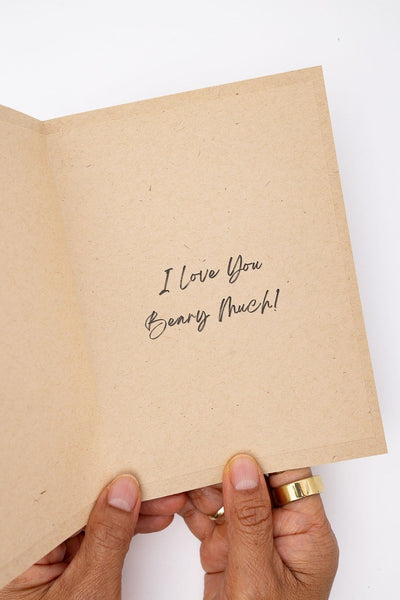 I Love You
Beary Much!